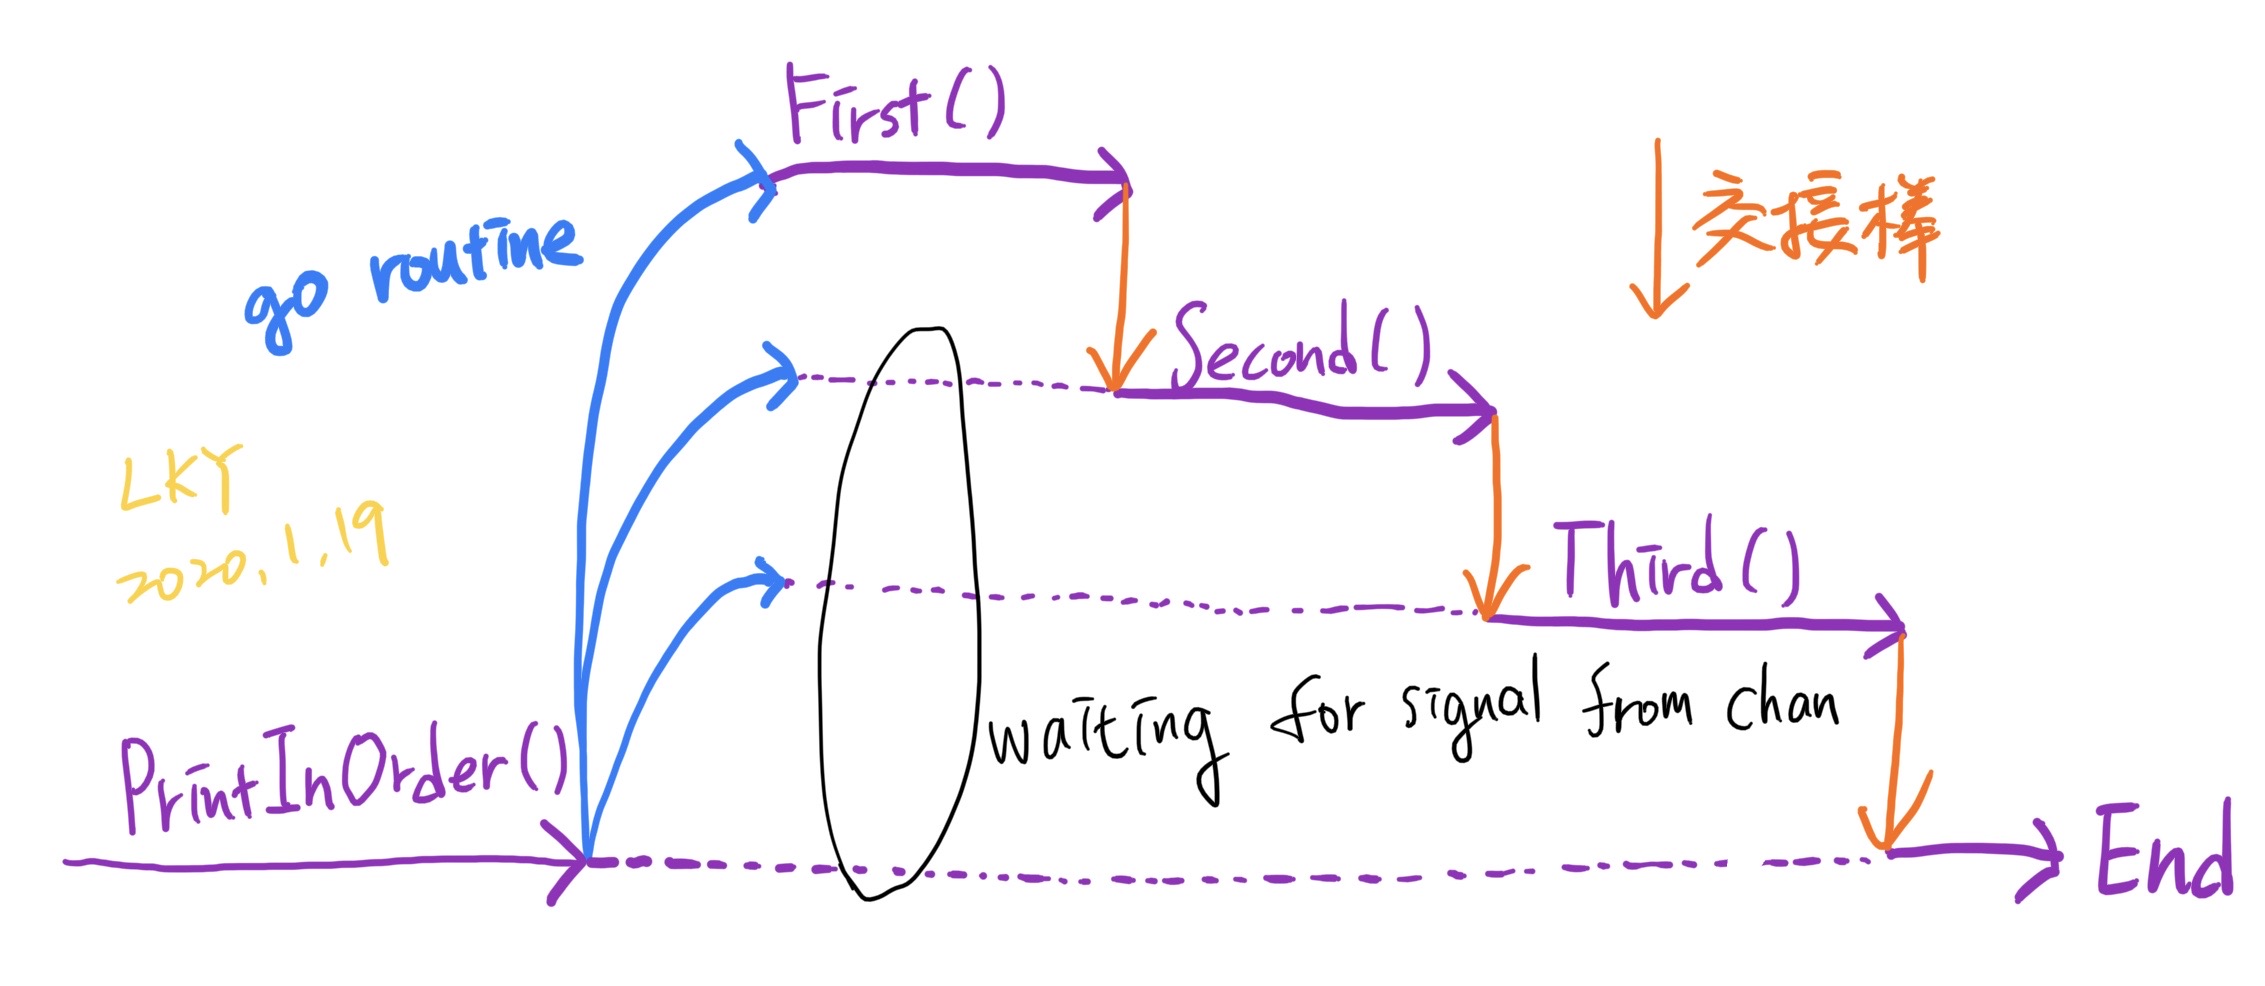 First()
交接棒
go routine
Second()
LKY
2020.1.19
Third()
waiting for signal from chan
PrintInOrder()
End